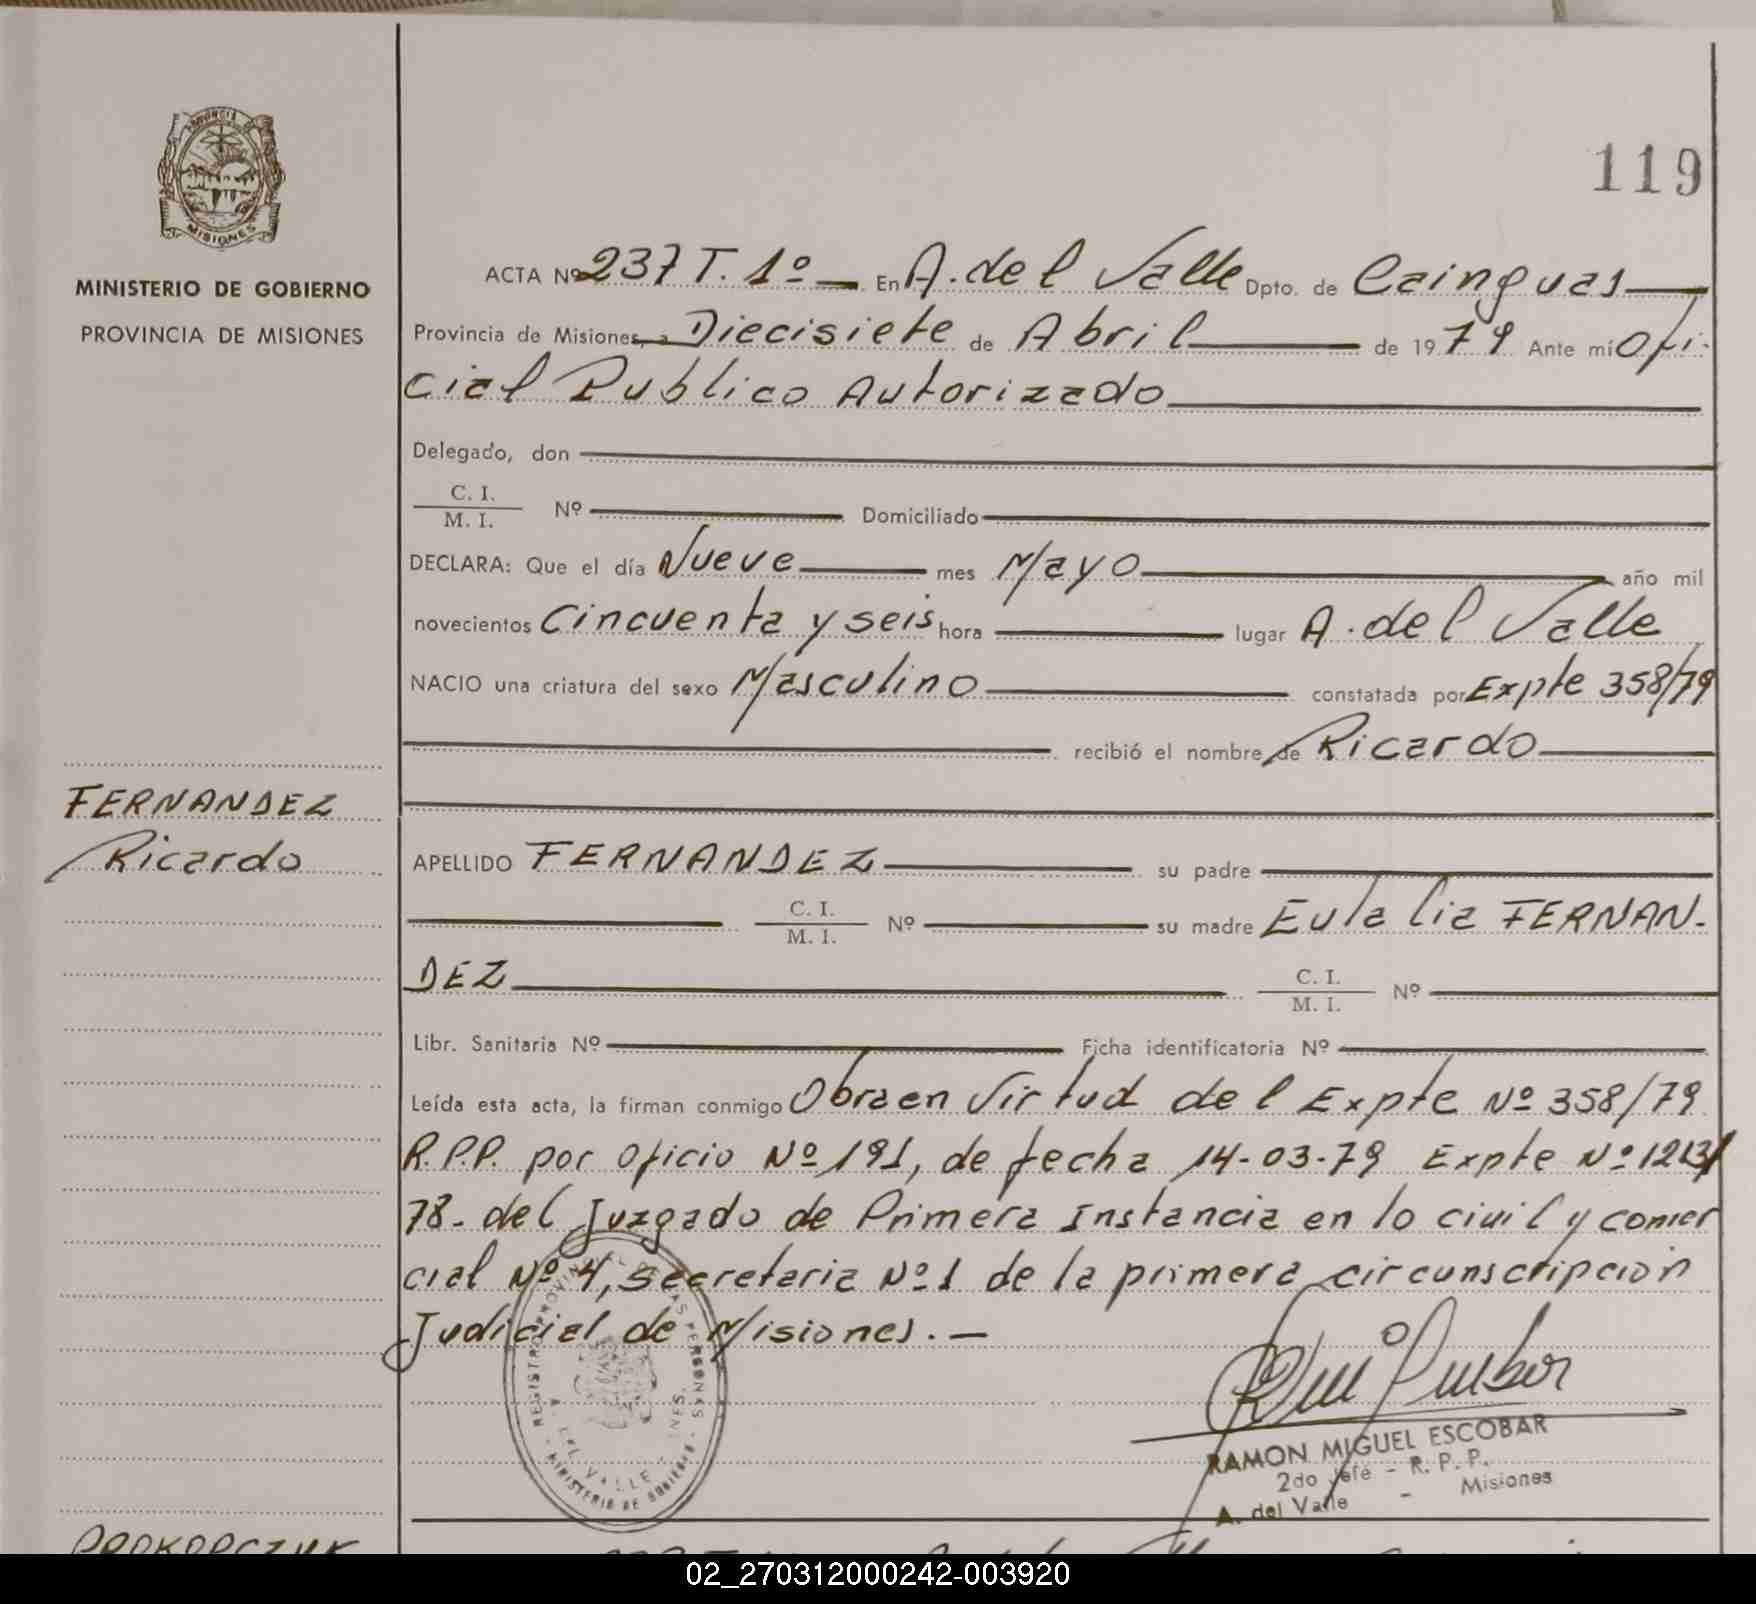 119
PROVINCIA DE
MISIONES
MINISTERIO DE GOBIERNO
PROVINCIA DE MISIONES
ACTA Nº 237 T. 1º En A. del Valle Dpto. de Cainguas
Provincia de Misiones, a Diecisiete de Abril de 1979 Ante mí Ofi-
cial Publico Autorizado
Delegado, don
C. I.
M. I. Nº Domiciliado
DECLARA: Que el día Nueve mes Mayo año mil
novecientos Cincuenta y seis hora lugar A. del Valle
NACIO una criatura del sexo Masculino constatada por Expte 358/79
recibió el nombre de Ricardo
FERNANDEZ
Ricardo
APELLIDO FERNANDEZ su padre
C. I.
M. I. Nº su madre Eulalia FERNAN-
DEZ C. I.
M. I. Nº
Libr. Sanitaria Nº Ficha identificatoria Nº
Leída esta acta, la firman conmigo Obra en Virtud del Expte Nº 358/79
R.P.P. por oficio Nº 191, de fecha 14-03-79 Expte Nº 1213/
78- del Juzgado de Primera Instancia en lo civil y comer
cial Nº 4, secretaria Nº 1 de la primera circunscripcion
Judicial de Misiones.-
REGISTRO PROVINCIAL DE LAS PERSONAS
A. DEL VALLE - MISIONES
- MINISTERIO DE GOBIERNO -
RAMON MIGUEL ESCOBAR
2do Jefe - R. P. P.
A. del Valle - Misiones
PROKOPCZUK
02_270312000242-003920